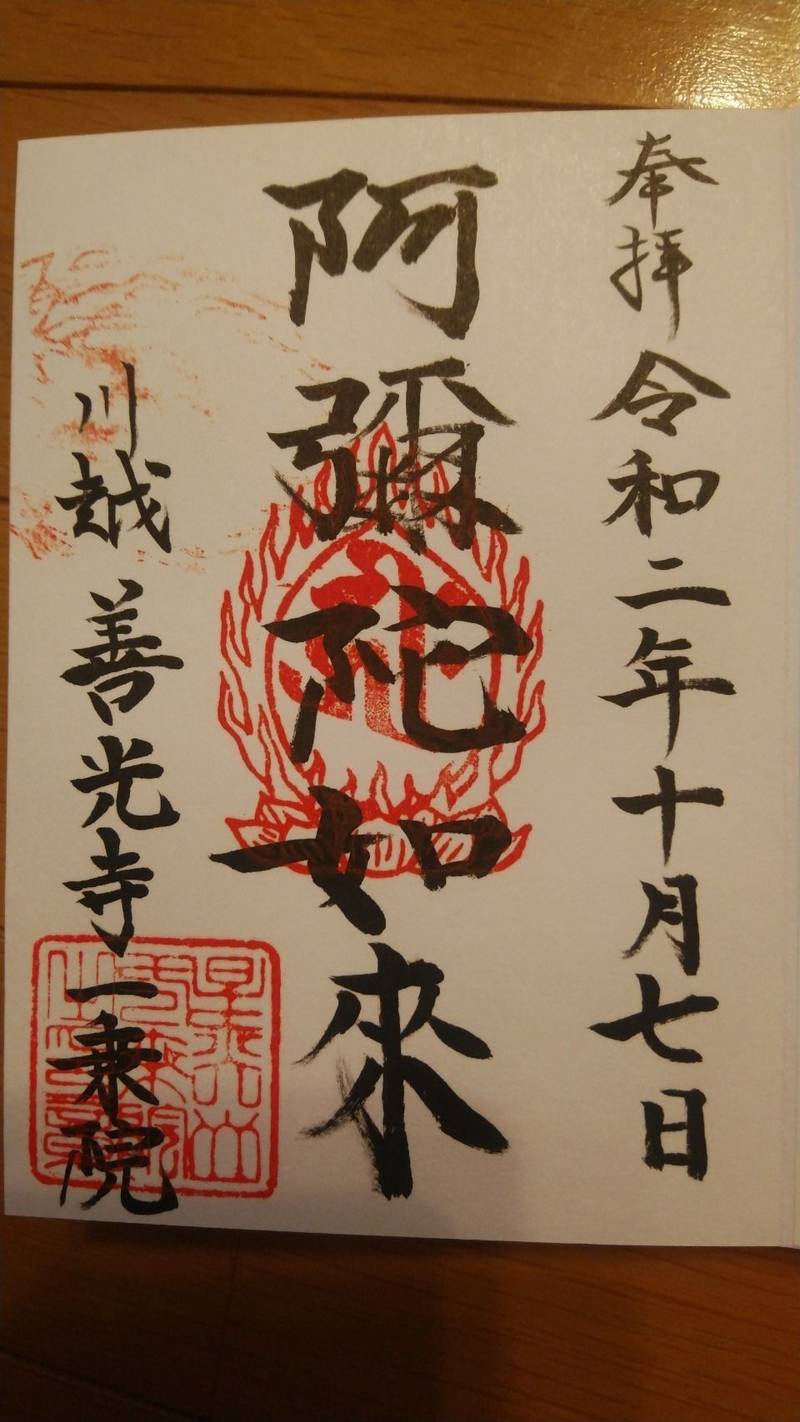 奉拝 令和二年十月七日
阿彌陀如來
川越 善光寺 一乗院